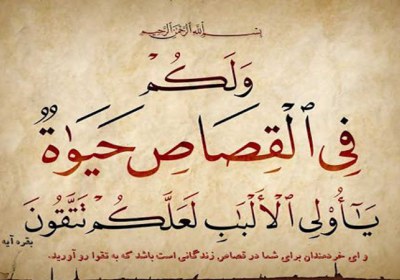 بسم الله الرحمن الرحیم
وَلَكُمْ
فِي الْقِصَاصِ حَيَوٰةٌ
يَٰٓأُو۟لِي الْأَلْبَٰبِ لَعَلَّكُمْ تَتَّقُونَ
بقره آیه
و ای خردمندان برای شما در قصاص زندگانی است باشد که به تقوا رو آورید.